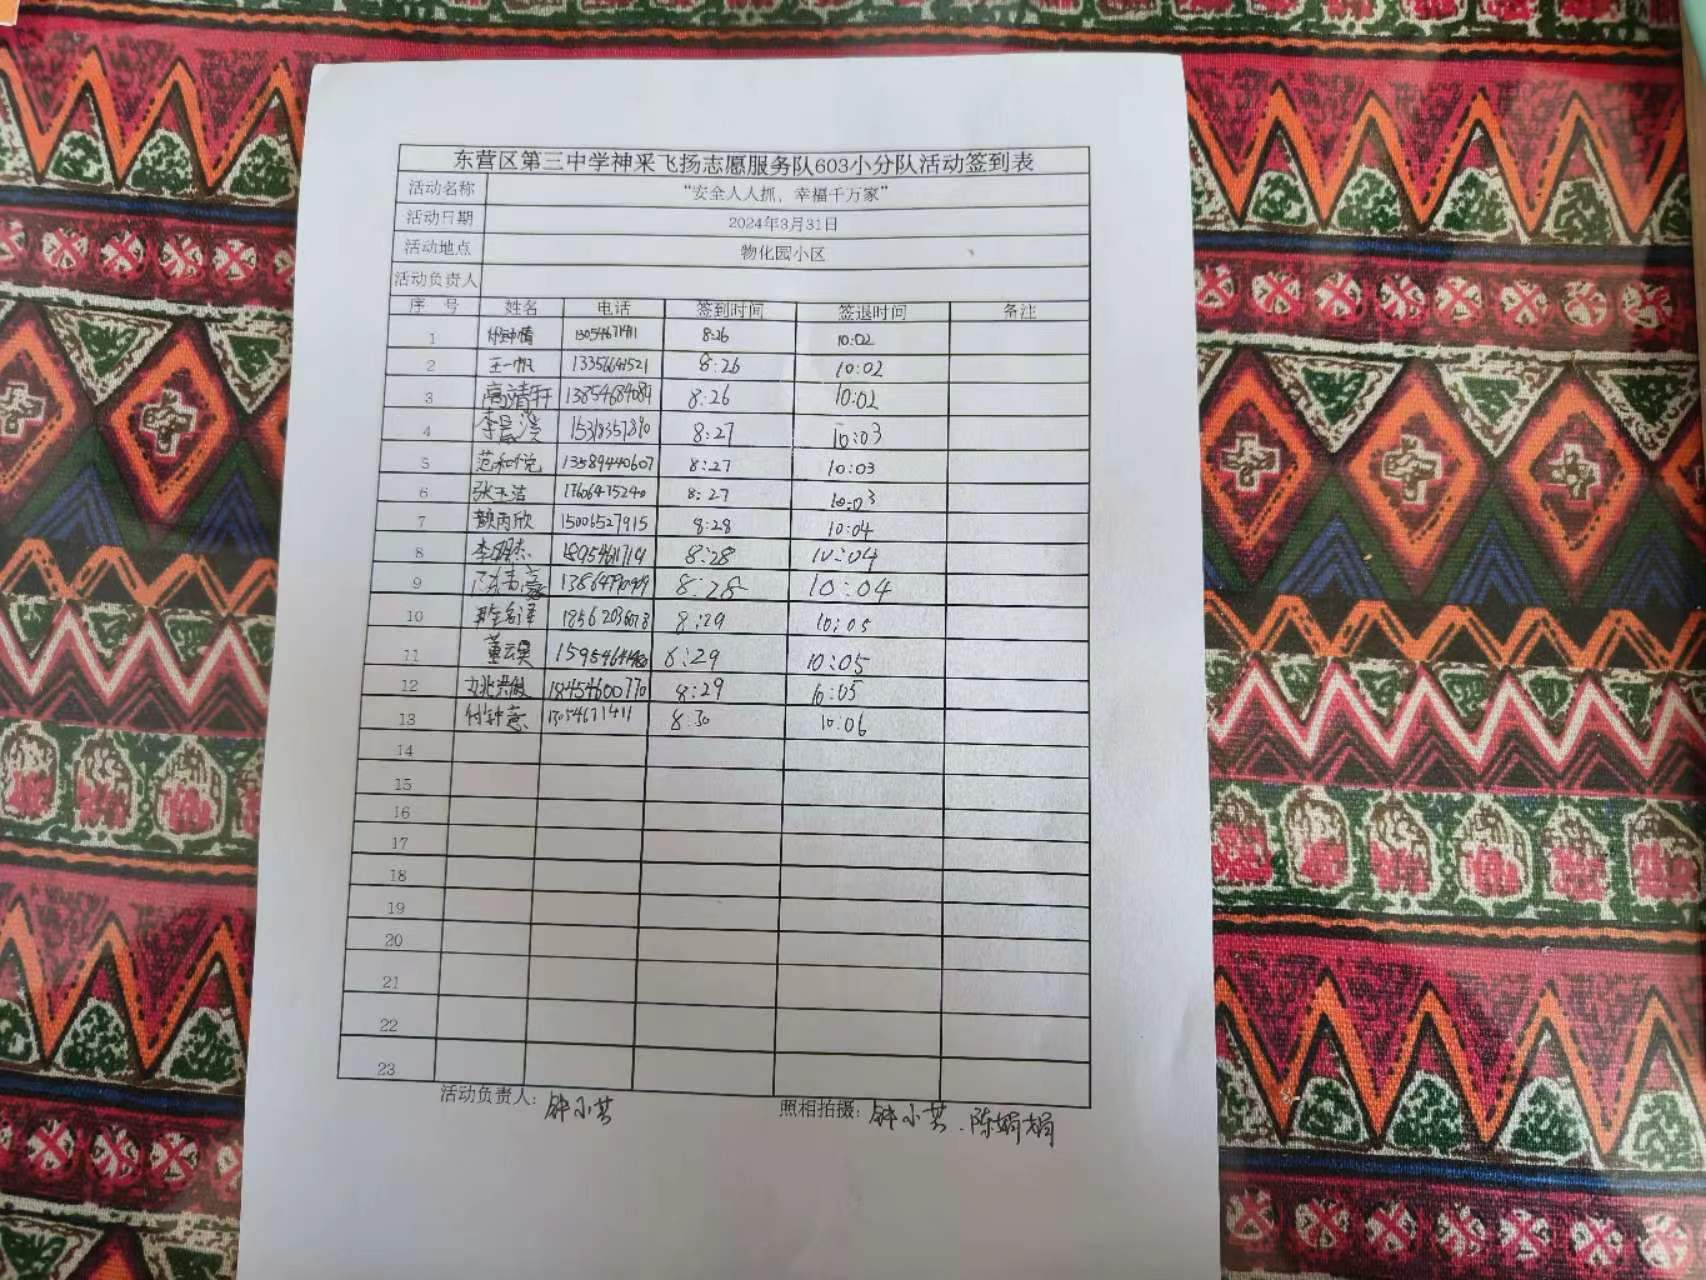 东营区第三中学神采飞扬志愿服务队603小分队活动签到表
活动名称 “安全人人抓，幸福千万家”
活动日期 2024年3月31日
活动地点 物化园小区
活动负责人
序 号 姓名 电话 签到时间 签退时间 备注
1 13054671411 8:26 10:02
2 王一帆 13356641521 8:26 10:02
3 高靖轩 13854684089 8:26 10:02
4 15318357890 8:27 10:03
5 范和悦 13589440607 8:27 10:03
6 张玉洁 17606475240 8:27 10:03
7 颜丙欣 15006527915 8:28 10:04
8 李明杰 8:28 10:04
9 8:28 10:04
10 8:29 10:05
11 董云昊 8:29 10:05
12 18454600770 8:29 10:05
13 付钟意 13054671411 8:30 10:06
14
15
16
17
18
19
20
21
22
23
活动负责人: 钟小芸 照相拍摄: 钟小芸.陈娟娟